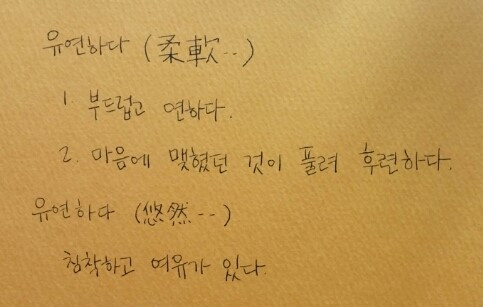 유연하다 (柔軟--)
1. 부드럽고 연하다.
2. 마음에 맺혔던 것이 풀려 후련하다.
유연하다 (悠然--)
침착하고 여유가 있다.